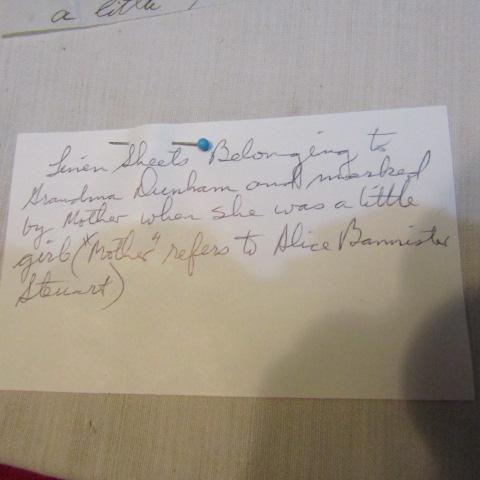 a little
Linen Sheets Belonging to
Grandma Dunham and marked
by Mother when she was a little
girl ("Mother" refers to Alice Bannister
Steuart)